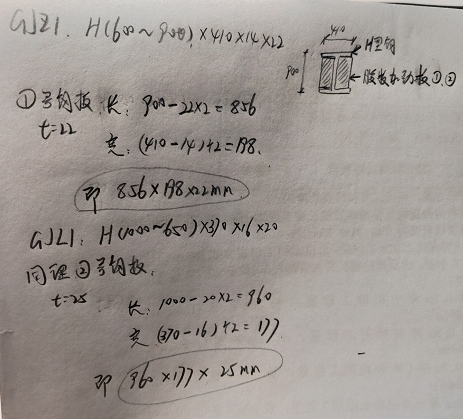 GJZ1. H(600~900)×410×14×22
410
H型钢
900
腹板加劲板①、②
①号钢板 长: 900-22×2=856
t=22
宽: (410-14)÷2=198.
即 856×198×22mm
GJL1: H(1000~650)×370×16×20
同理②号钢板,
t=25
长: 1000-20×2=960
宽 (370-16)÷2=177
即 960×177×25mm